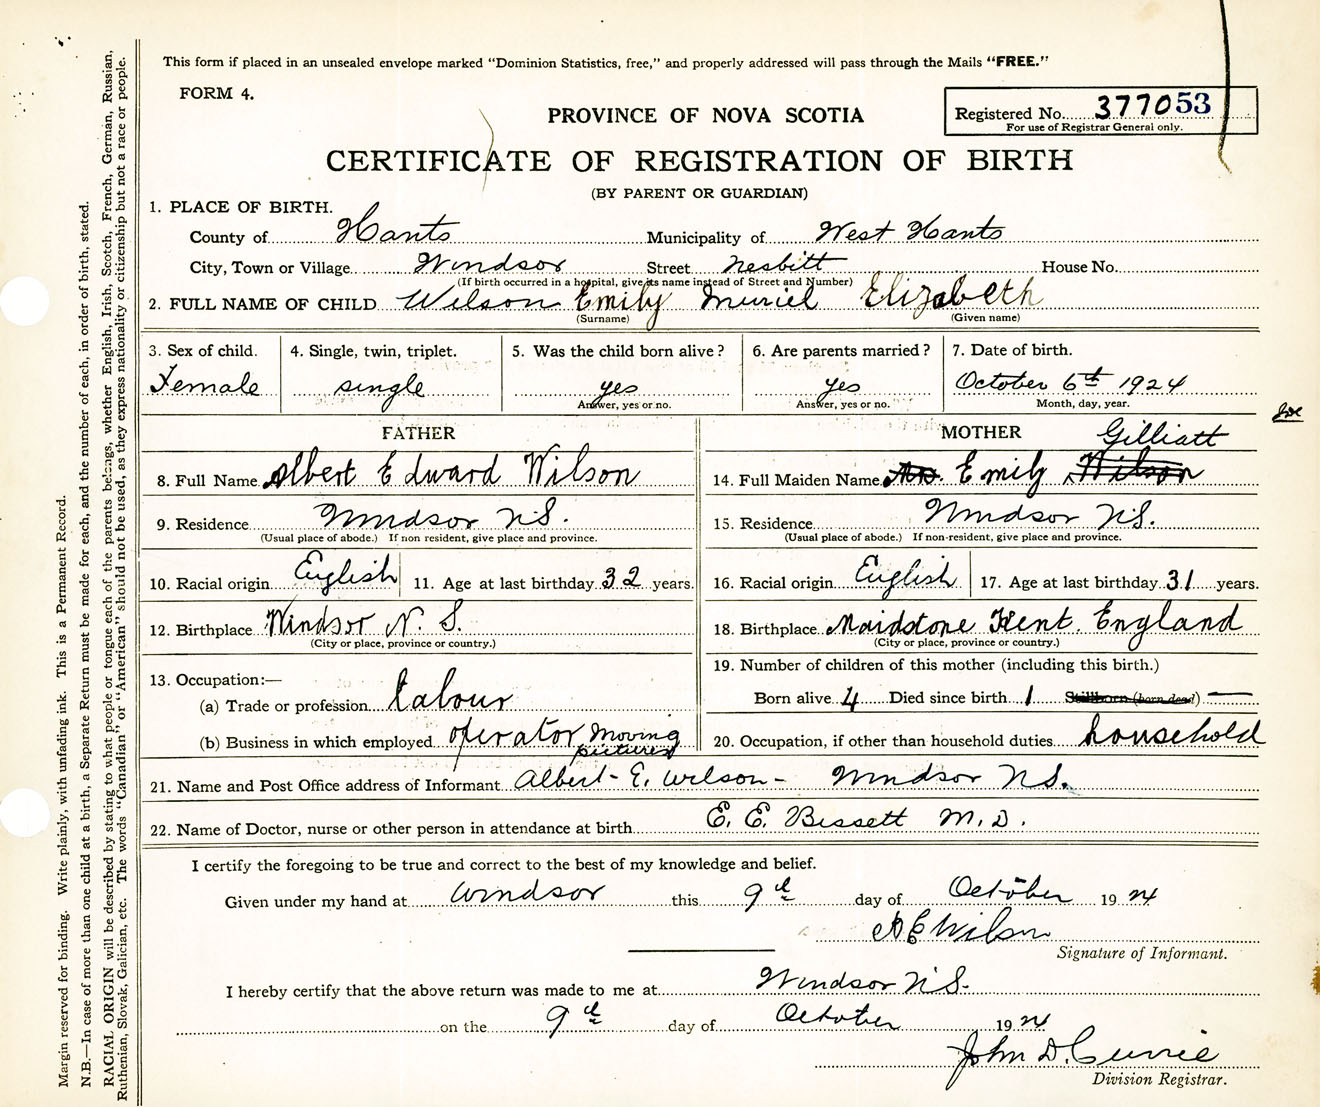 This form if placed in an unsealed envelope marked "Dominion Statistics, free," and properly addressed will pass through the Mails "FREE."
FORM 4.
Registered No. 377053
For use of Registrar General only.
PROVINCE OF NOVA SCOTIA
CERTIFICATE OF REGISTRATION OF BIRTH
(BY PARENT OR GUARDIAN)
1. PLACE OF BIRTH.
County of Hants Municipality of West Hants
City, Town or Village Windsor Street Nesbitt House No.
(If birth occurred in a hospital, give its name instead of Street and Number)
2. FULL NAME OF CHILD Wilson Emily Muriel Elizabeth
(Surname) (Given name)
3. Sex of child. 4. Single, twin, triplet. 5. Was the child born alive? 6. Are parents married? 7. Date of birth.
Female single yes yes October 6th 1924
Answer, yes or no. Answer, yes or no. Month, day, year.
FATHER MOTHER Gilliatt
8. Full Name Albert Edward Wilson 14. Full Maiden Name Mrs. Emily Wilson
9. Residence Windsor N.S. 15. Residence Windsor N.S.
(Usual place of abode.) If non resident, give place and province. (Usual place of abode.) If non-resident, give place and province.
10. Racial origin English 11. Age at last birthday 32 years. 16. Racial origin English 17. Age at last birthday 31 years.
12. Birthplace Windsor N. S. 18. Birthplace Maidstone Kent. England
(City or place, province or country.) (City or place, province or country.)
13. Occupation:— 19. Number of children of this mother (including this birth.)
(a) Trade or profession Labour Born alive 4 Died since birth 1 Stillborn (born dead) —
(b) Business in which employed operator Moving pictures 20. Occupation, if other than household duties household
21. Name and Post Office address of Informant Albert E. Wilson - Windsor N.S.
22. Name of Doctor, nurse or other person in attendance at birth E. E. Bissett M.D.
I certify the foregoing to be true and correct to the best of my knowledge and belief.
Given under my hand at Windsor this 9th day of October 1924
A E Wilson
Signature of Informant.
I hereby certify that the above return was made to me at Windsor N.S.
on the 9th day of October 1924
John D. Currie
Division Registrar.
Margin reserved for binding. Write plainly, with unfading ink. This is a Permanent Record.
N.B.—In case of more than one child at a birth, a Separate Return must be made for each, and the number of each, in order of birth, stated.
RACIAL ORIGIN will be described by stating to what people or tongue each of the parents belongs, whether English, Irish, Scotch, French, German, Russian,
Ruthenian, Slovak, Galician, etc. The words "Canadian" or "American" should not be used, as they express nationality or citizenship but not a race or people.